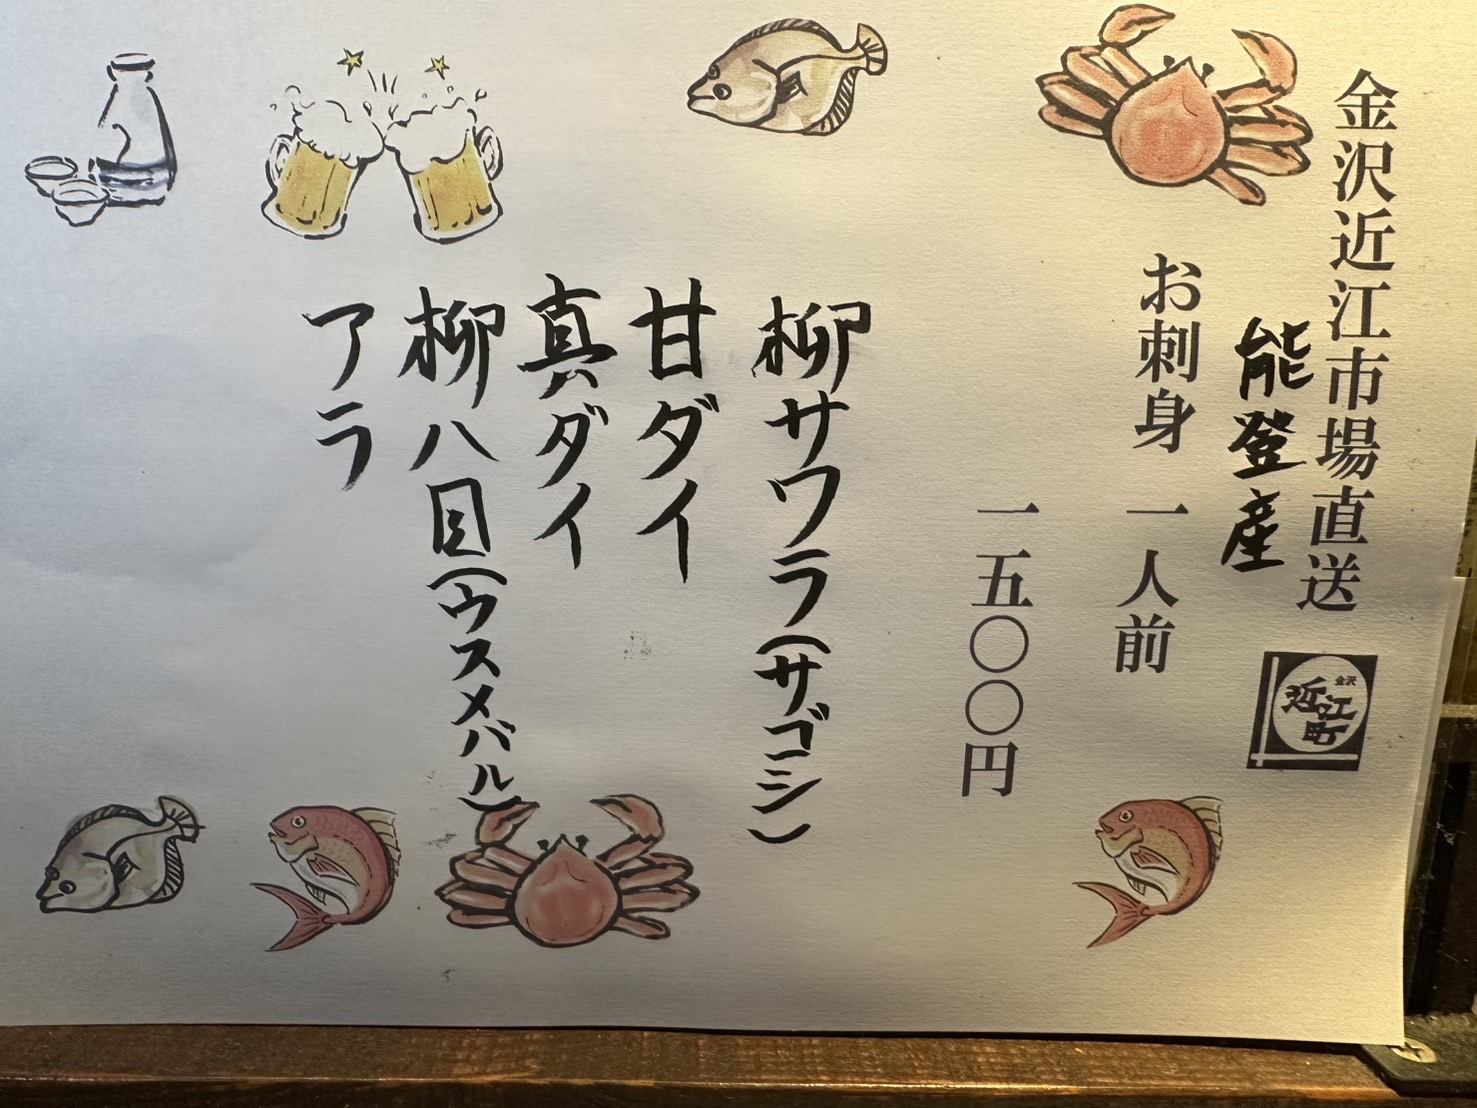 金沢近江市場直送
金沢
近江町
能登産
お刺身 一人前
一五〇〇円
柳サワラ(サゴシ)
甘ダイ
真ダイ
柳八目(ウスメバル)
アラ